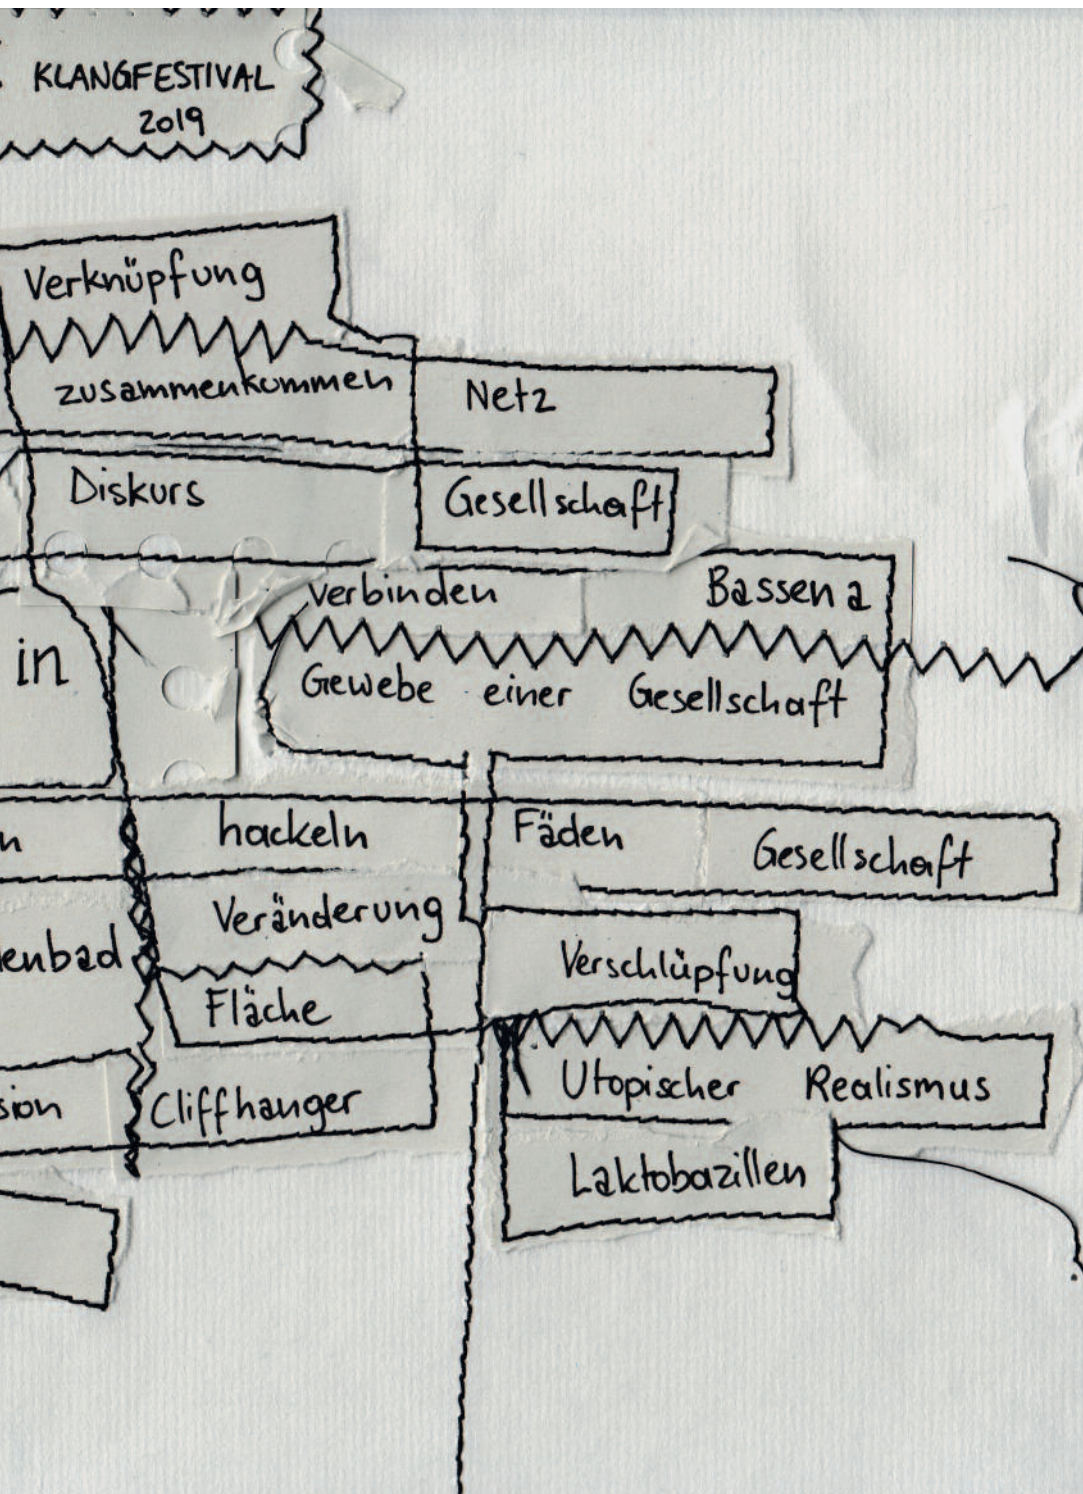 KLANGFESTIVAL
2019
Verknüpfung
zusammenkommen
Netz
Diskurs
Gesellschaft
verbinden Bassena
in
Gewebe einer Gesellschaft
n
hackeln
Fäden
Gesellschaft
Veränderung
enbad
Verschlüpfung
Fläche
Utopischer Realismus
sion
Cliffhanger
Laktobazillen